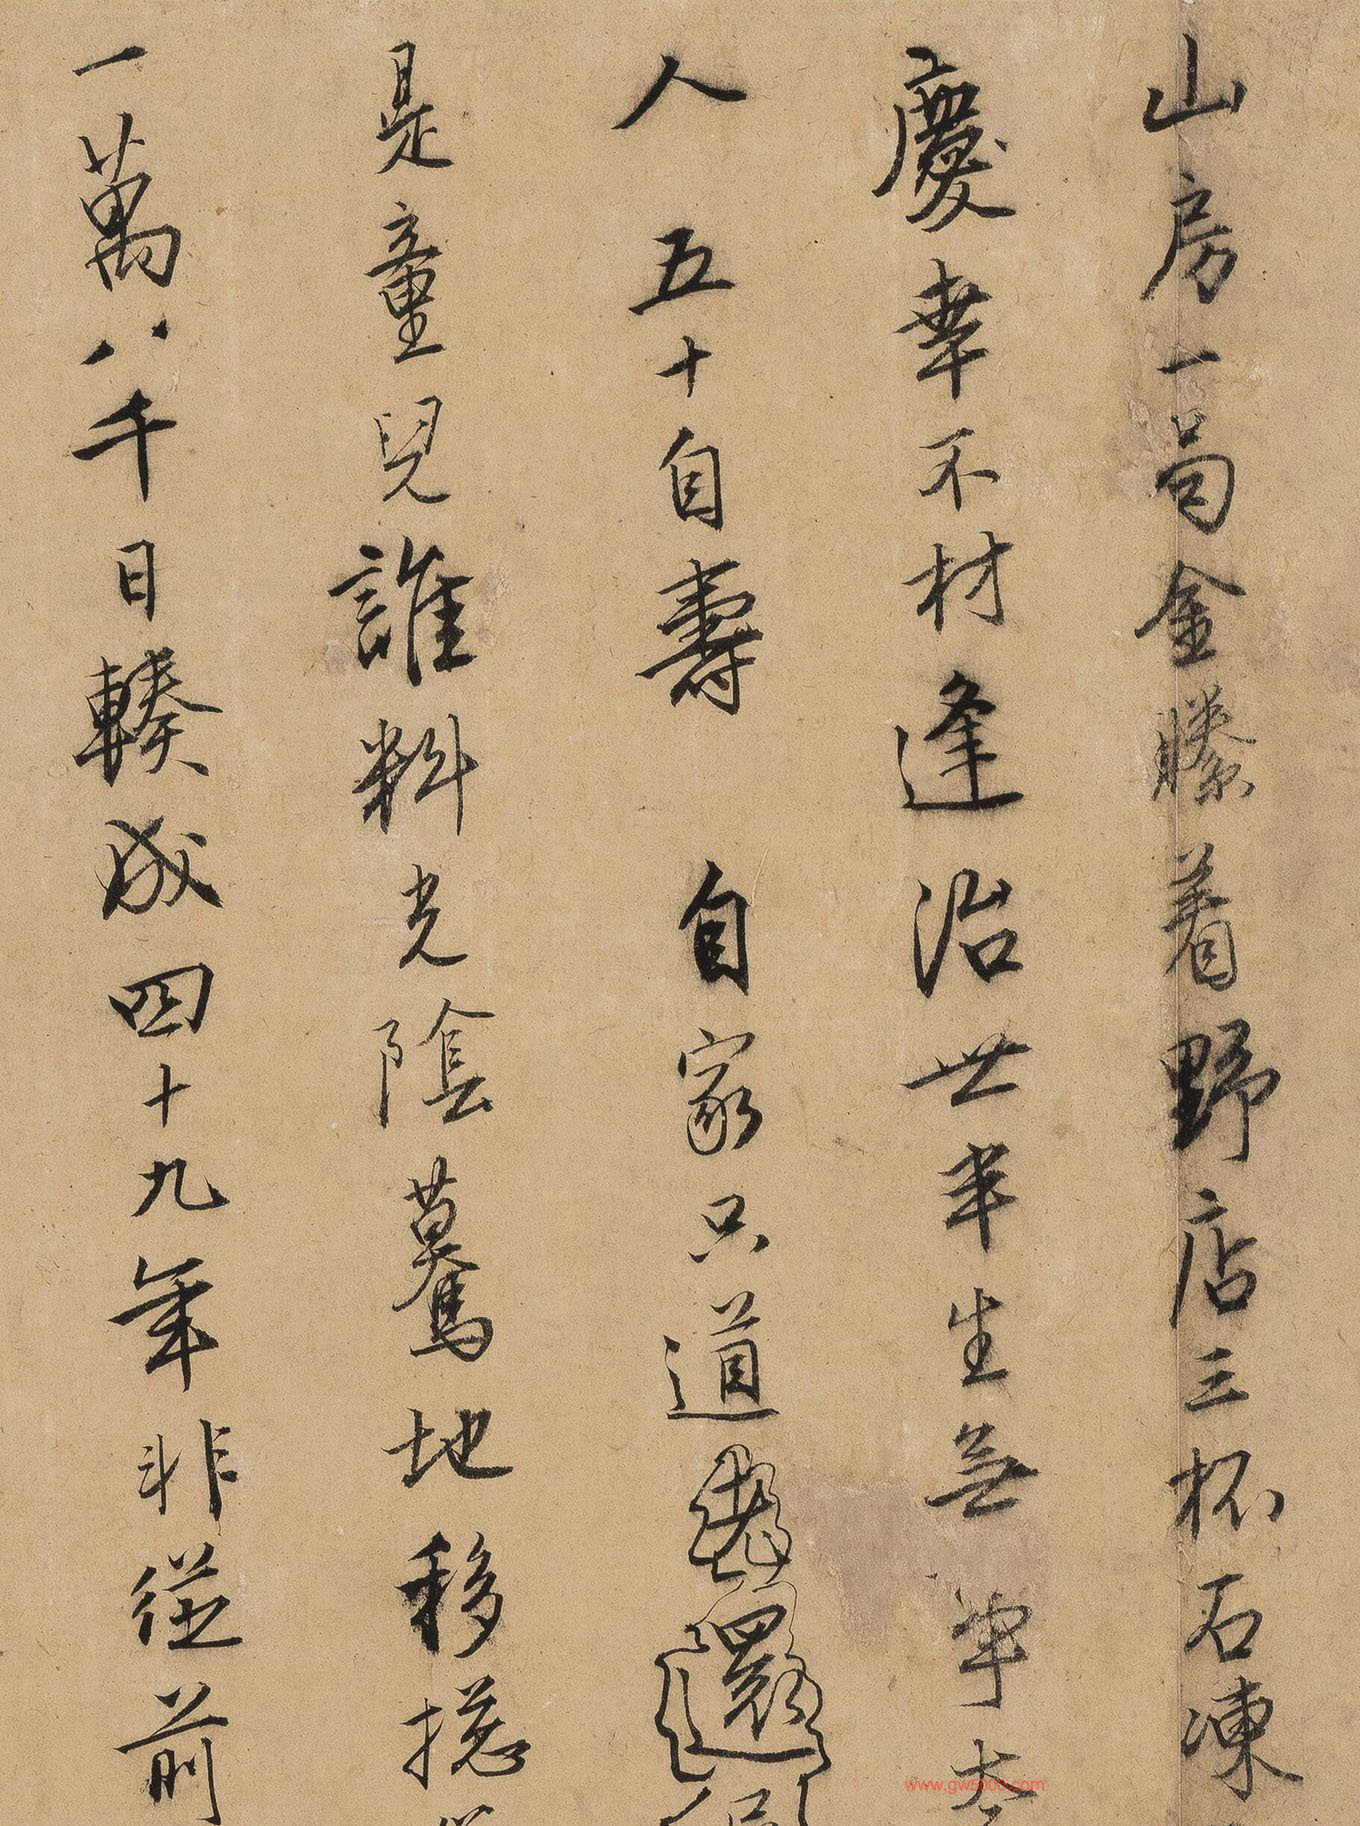 山房一局金縢着野店三杯石凍
慶幸不材逢治世半生無事太
人 五十自壽 自家只道還
是童兒誰料光陰驀地移揔
一萬八千日輳成四十九年非從前
www.gw5000.com